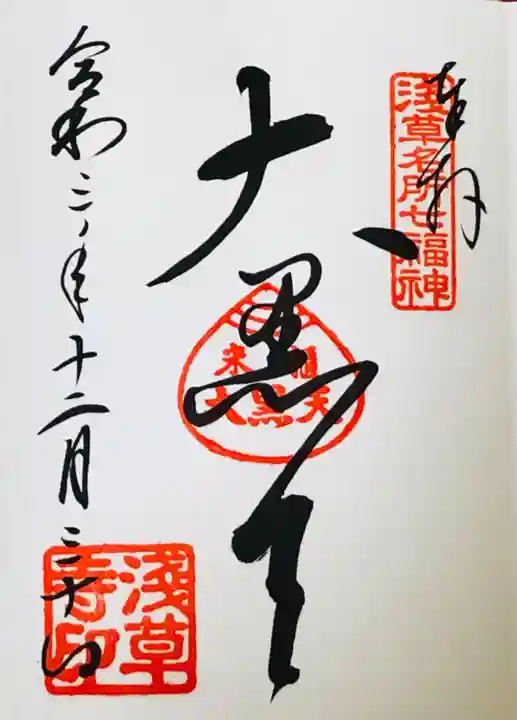 奉拝
淺草名所七福神
大黒天
米福
大黒天
令和三年十二月三十日
淺草寺印